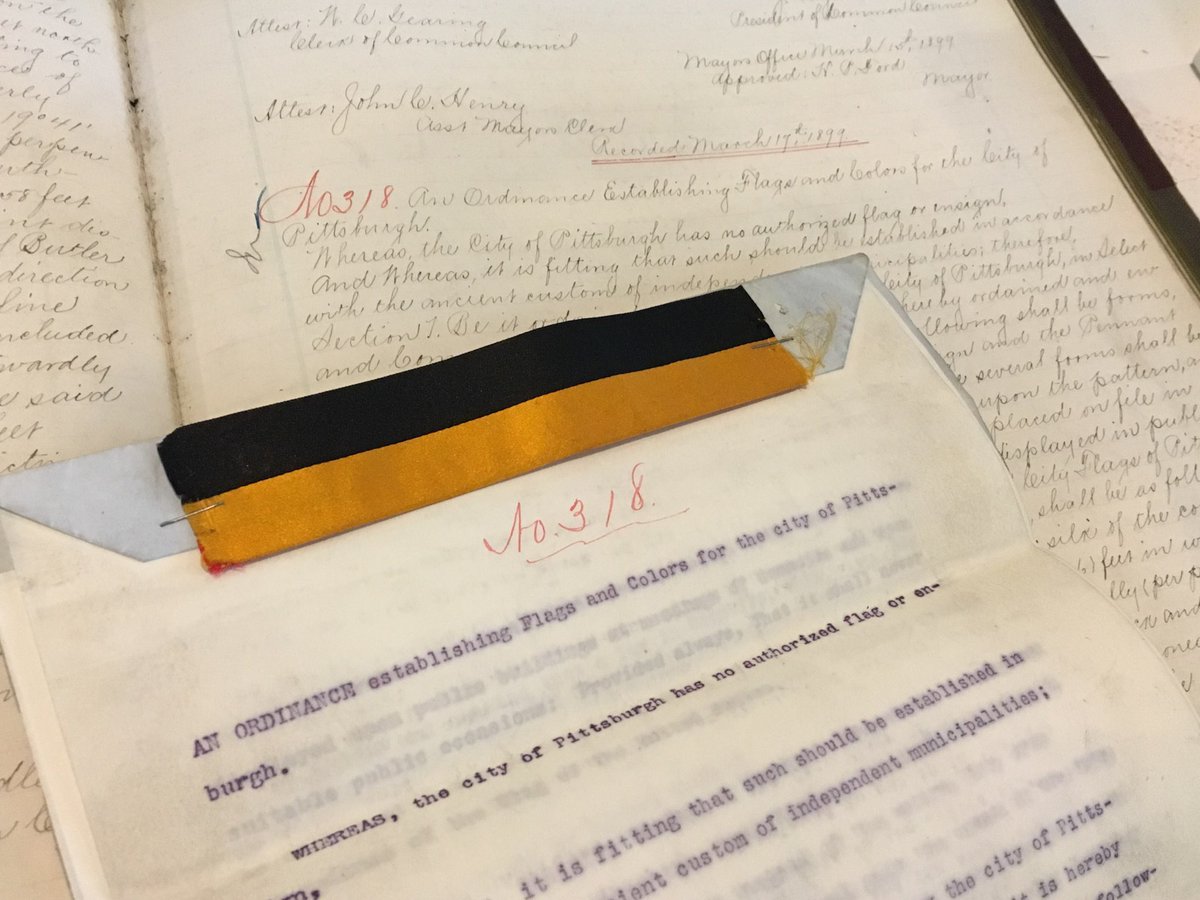 on the
north
ing to
ces of
erly
19°41'
perpen
uth-
feet
int dis-
f Butler
direction
line
ncluded
twardly
e said
eet
Attest: W. C. Gearing
Clerk of Common Council
President of Common Council
Mayors Office March 15th, 1899
Approved: H. P. Ford
Mayor
Attest: John C. Henry
Asst Mayors Clerk
Recorded March 17th 1899
No 318. An Ordinance Establishing Flags and Colors for the City of
Pittsburgh.
Whereas, the City of Pittsburgh has no authorized flag or ensign,
And Whereas, it is fitting that such should be established in accordance
with the ancient custom of indepen icipalities; therefore,
Section 1. Be it ordai City of Pittsburgh, in Select
and Com hereby ordained and en
llowing shall be forms,
gn and the Pennant
e several forms shall be
upon the pattern, a
placed on file in
displayed in publ
City Flags of Pit
shall be as foll
silk of the co
) feet in w
lly (per p
and
No. 318.
AN ORDINANCE establishing Flags and Colors for the city of Pitts-
burgh.
WHEREAS, the city of Pittsburgh has no authorized flag or en-
it is fitting that such should be established in
ient custom of independent municipalities;
the city of Pitts-
it is hereby
follow-